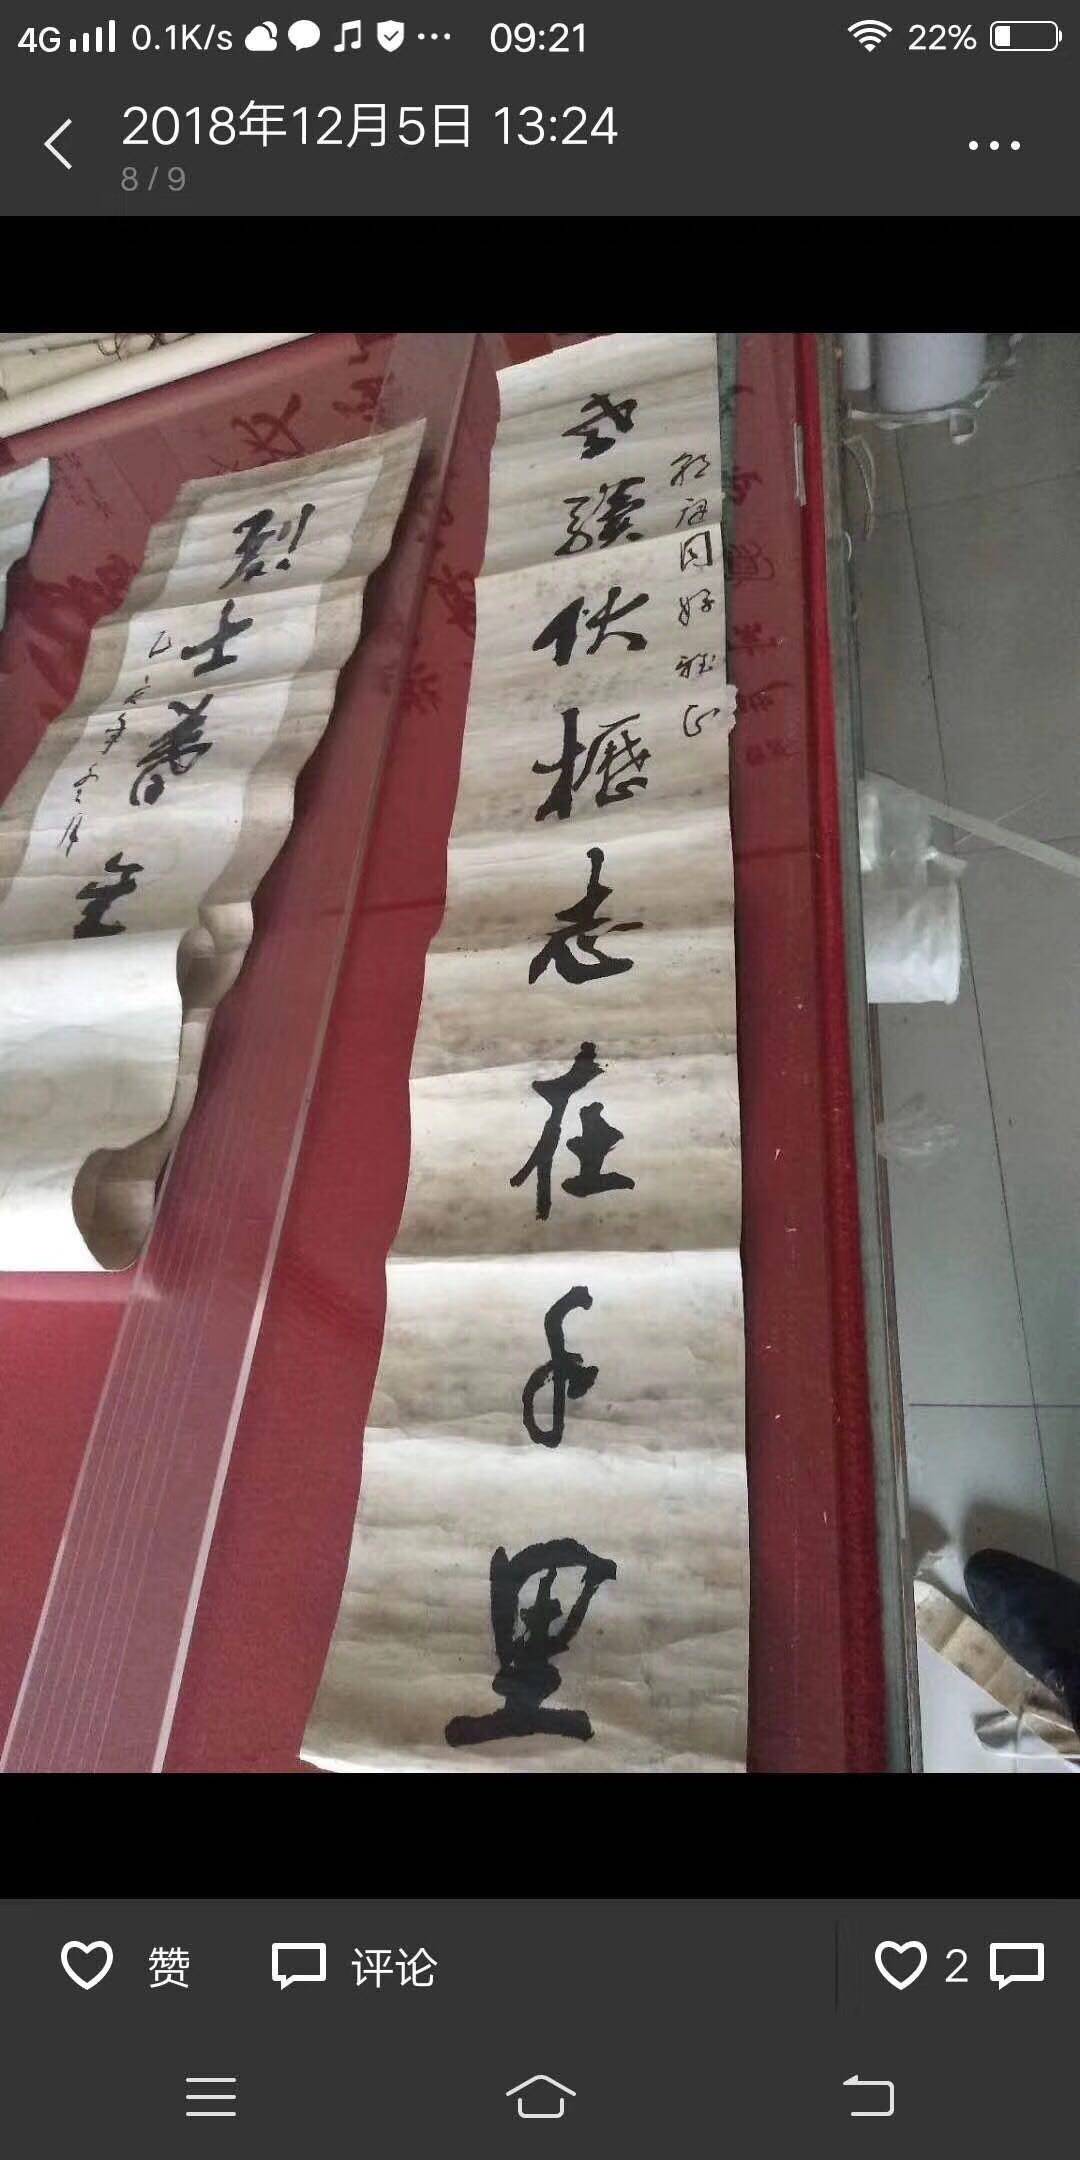 4G 0.1K/s ... 09:21 22%
2018年12月5日 13:24
8 / 9
老驥伏櫪志在千里
同好雅正
烈士暮年
赞
评论
2